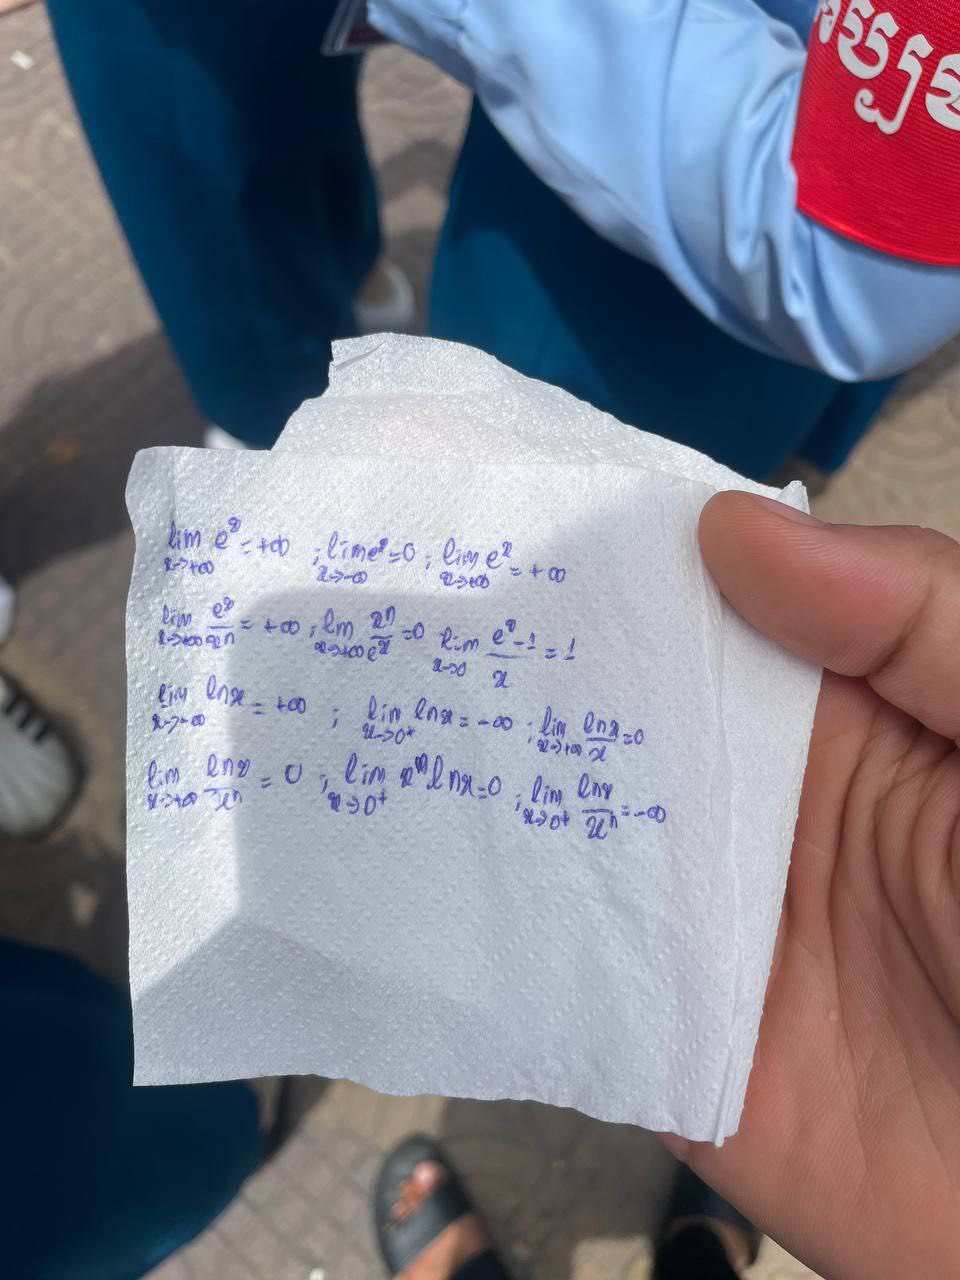 lim x→+∞ e^x = +∞ ; lim x→-∞ e^x = 0 ; lim x→+∞ e^x = +∞
lim x→+∞ e^x/x^n = +∞ ; lim x→+∞ x^n/e^x = 0 lim x→0 (e^x - 1)/x = 1
lim x→+∞ lnx = +∞ ; lim x→0⁺ lnx = -∞ ; lim x→+∞ lnx/x = 0
lim x→+∞ lnx/x^n = 0 ; lim x→0⁺ x^n lnx = 0 ; lim x→0⁺ lnx/x^n = -∞